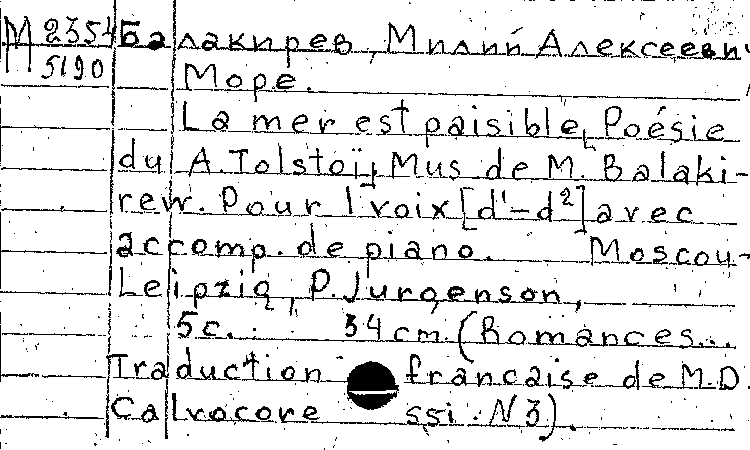 М 2354 Балакирев, Милий Алексеевич
5190 Море.
La mer est paisible, Poésie
du A. Tolstoï, Mus de M. Balaki-
rew. Pour 1 voix [d¹-d²] avec
accomp. de piano. Moscou-
Leipzig, P. Jurgenson,
5c. 34 cm. (Romances...
Traduction francaise de M.D.
Calvocore ssi. N3).